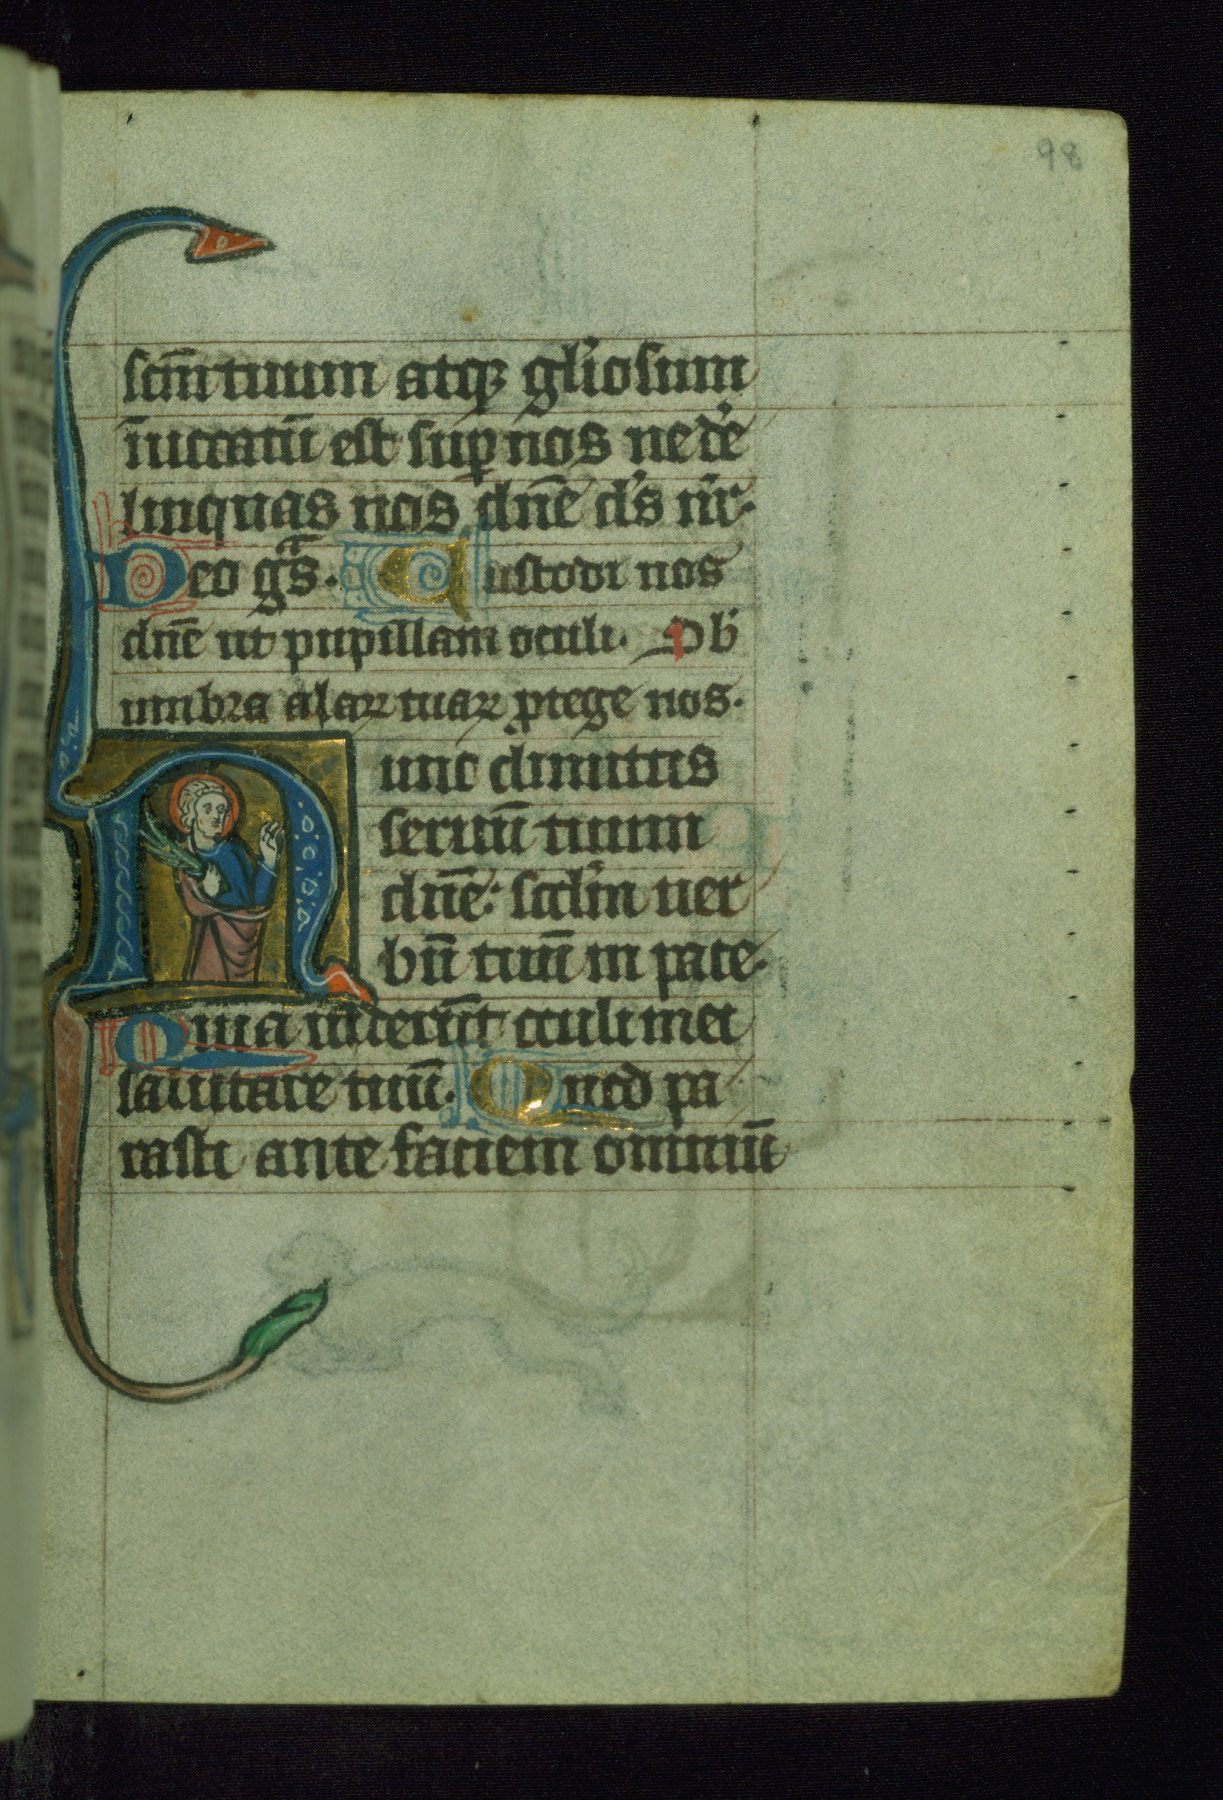 98
scm̄ tuum atq̢ gl'iosum
īuocatū est sup̱ nos ne de'
linquas nos dn̄e d's nr̄.
Deo gᵃs. Custodi nos
dn̄e ut pupillam oculi. Sb'
umbra alaꝝ tuaꝝ ꝓtege nos.
Nunc dimittis
seruū tuum
dn̄e: scd'm uer
bū tuū in pace.
Quia uiderūt oculi mei
salutare tuū. Quod pa
rasti ante faciem omniū